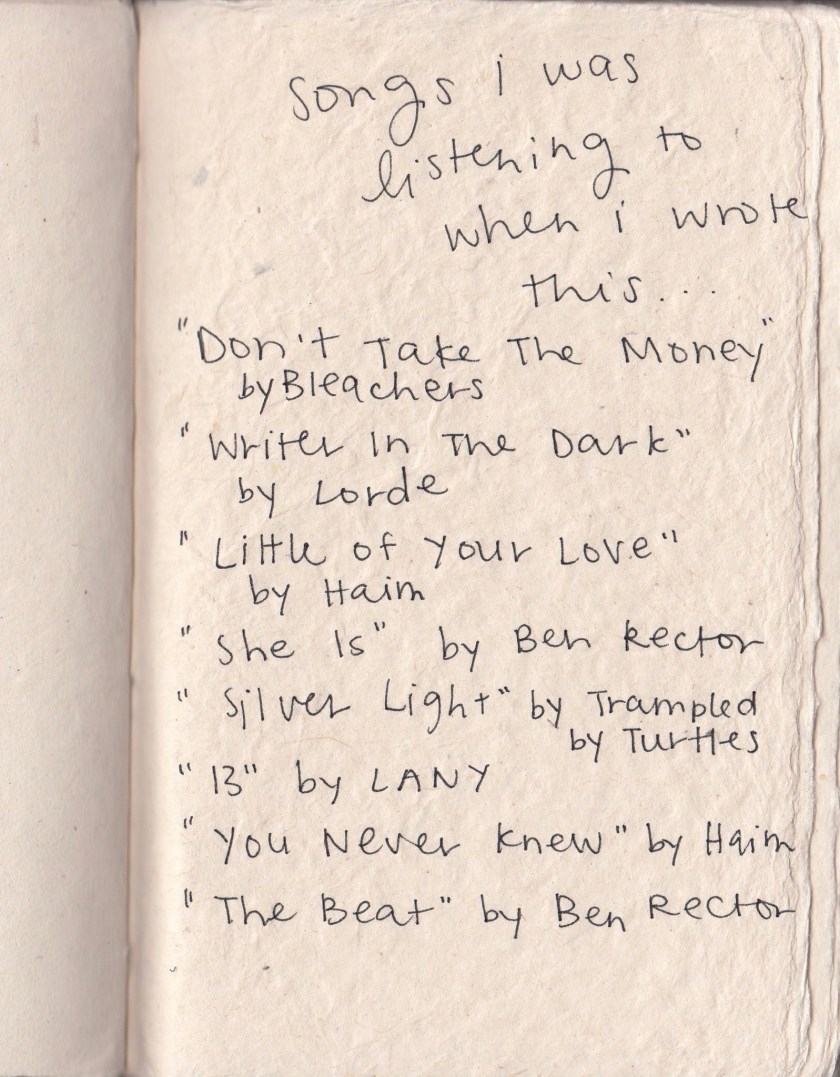 songs i was
listening to
when i wrote
this...
"Don't Take The Money"
by Bleachers
"Writer In The Dark"
by Lorde
"Little of Your Love"
by Haim
"She Is" by Ben Rector
"Silver Light" by Trampled
by Turtles
"13" by LANY
"You Never Knew" by Haim
"The Beat" by Ben Rector